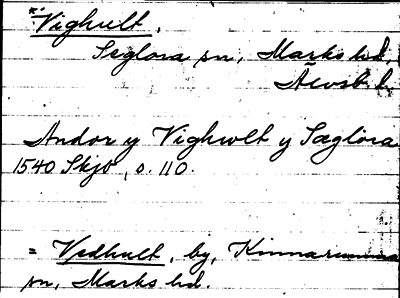 *Vighult.
Seglora sn, Marks hd,
Älvsb. l.
Andor y Vighwlt y Sæglöra
1540 Skjb, o. 110.
= Vedhult, by, Kinnarumma
sn, Marks hd.